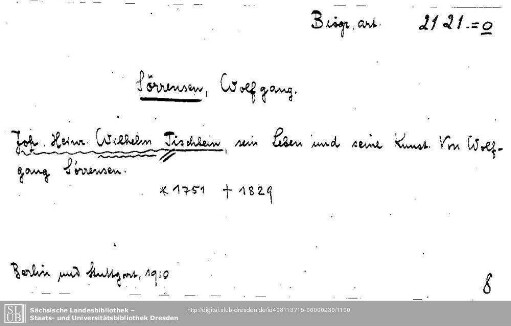 Biogr. art. 21 21.=0
Sörrensen, Wolfgang.
Joh. Heinr. Wilhelm Tischbein, sein Leben und seine Kunst. Von Wolf-
gang Sörrensen.
* 1751 † 1829
Berlin und Stuttgart, 1910
8
SLUB
Sächsische Landesbibliothek –
Staats- und Universitätsbibliothek Dresden